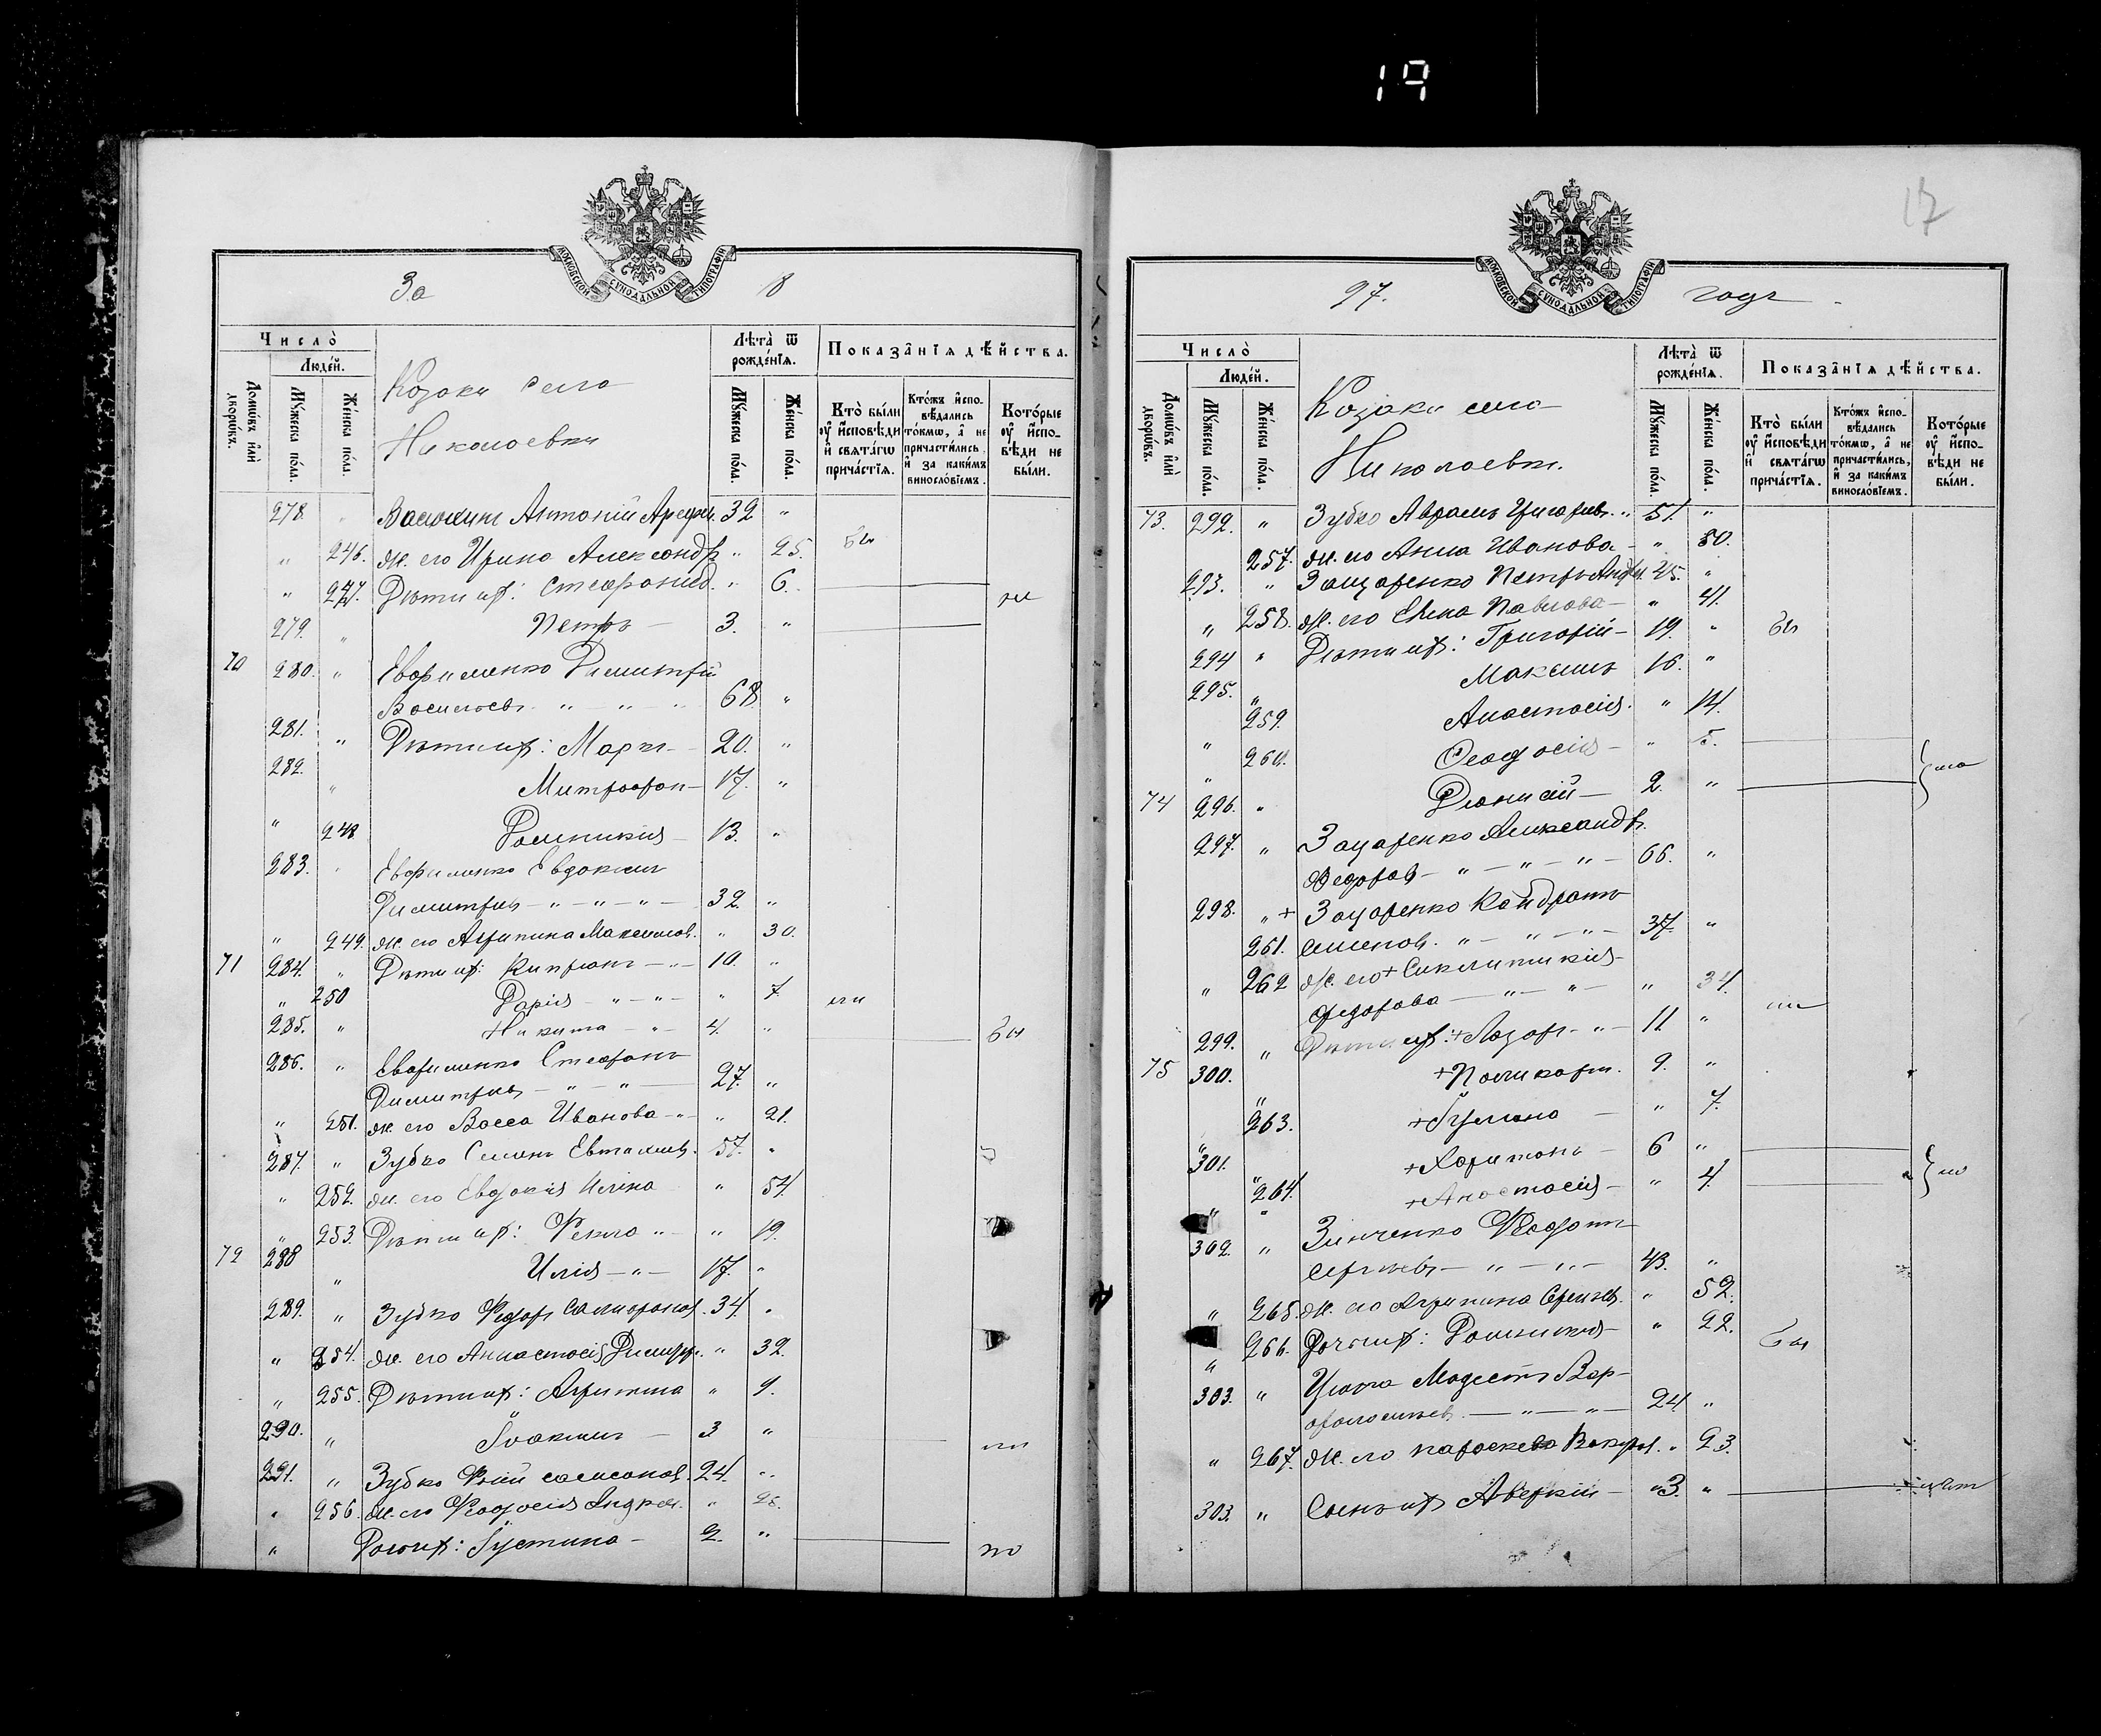 19
17
МОСКОВСКОЙ СУНОДАЛЬНОЙ ТИПОГРАФІИ
За 18
Число̀
Людей.
Домѡвъ или дворѡвъ.
Мꙋжеска пола.
Женска пола.
Козаки села
Николаевки
Лѣта ѿ рожденїѧ.
Мꙋжеска пола.
Женска пола.
Показанїѧ дѣйства.
Кто были оу исповѣди и свѧтагѡ причастїѧ.
Ктожъ исповѣдались токмѡ, а не причастились, и за какимъ винословїемъ.
Которые оу исповѣди не были.
278. Антоній 32 "
" 246. ж. его Ирина Александр. " 25. бы
" 247. Дѣти их: Стефанид. " 6.
279. " Петръ — 3. "
70 280. " Евфименко Димитрій
Василіев. " — " — " 68 "
281. " Дѣти их: Маркъ — 20. "
282. " Митрофан — 17. "
" 248 Домникія — 13. "
283. " Евфименко Евдоким
Димитріев — " — " — " — 32. "
" 249. ж. его Агрипина Максимов. " 30.
71 284. " Дѣти их: Кипріанъ — " — 10. "
" 250 Дарія — " — " — " 7. ли
285. " Никита — " — 4. " бы
286. " Евфименко Стефанъ
Димитріев — " — " — 27. "
" 251. ж. его Васса Иванова — " — " 21.
287. " Зубко Симонъ 57. "
" 252. ж. его Евдокія Иліина " 54
" 253. Дѣти их: Фекла " — " 19.
72 288 " Илія — " — 17. "
289. " Зубко Федор 34. "
" 254. ж. его Анастасія Димитр. " 32.
" 255. Дѣти их: Агрипина " 9.
290. " Іоаким — 3 " ли
291. " Зубко 24. "
" 256. ж. его Феодосія Андреев. " 28.
" Дочь их: Іустина — 2. " но
97. годъ.
МОСКОВСКОЙ СУНОДАЛЬНОЙ ТИПОГРАФІИ
Число̀
Людей.
Домѡвъ или дворѡвъ.
Мꙋжеска пола.
Женска пола.
Козаки села
Николаевки.
Лѣта ѿ рожденїѧ.
Мꙋжеска пола.
Женска пола.
Показанїѧ дѣйства.
Кто были оу исповѣди и свѧтагѡ причастїѧ.
Ктожъ исповѣдались токмѡ, а не причастились, и за какимъ винословїемъ.
Которые оу исповѣди не были.
73. 292. " Зубко Аврамъ Григорьев. " 51. "
257. ж. его Анна Иванова — " 50.
293. " Захаренко Петръ 45. "
" 258. ж. его Елена Павлова — " 41.
294 " Дѣти их: Григорій — 19. " бы
295. " Максимъ 16. "
" 259. Анастасія. " 14.
" 260. Феодосія — " 5.
74 296. " Діонисій — 2. "
297. " Захаренко Александръ
Федоров — " — " — " — 66. "
298. " + Захаренко Кондратъ
261. " — " — " — 37. "
" 262 ж. его + Синклитикія —
Федорова — " — " — " 34.
299. " Дѣти их: + Лазарь — " — 11. " ли
75 300. " + Поликарп. 9. "
263. + Іуліана — " 7.
301. " + Харитонъ — 6 "
264. + Анастасія — " 4.
302. " Зинченко Феодотъ
Сергіев — " — " — 43. "
" 265. ж. его Агрипина Сергіев. " 52.
" 266. Дочь их: Домникія — " 22. бы
303. " Модестъ Вар-
фоломеев. — " — " — 24 "
" 267. ж. его Параскева " 23.
303. " Сынъ их Аверкій — "3. "